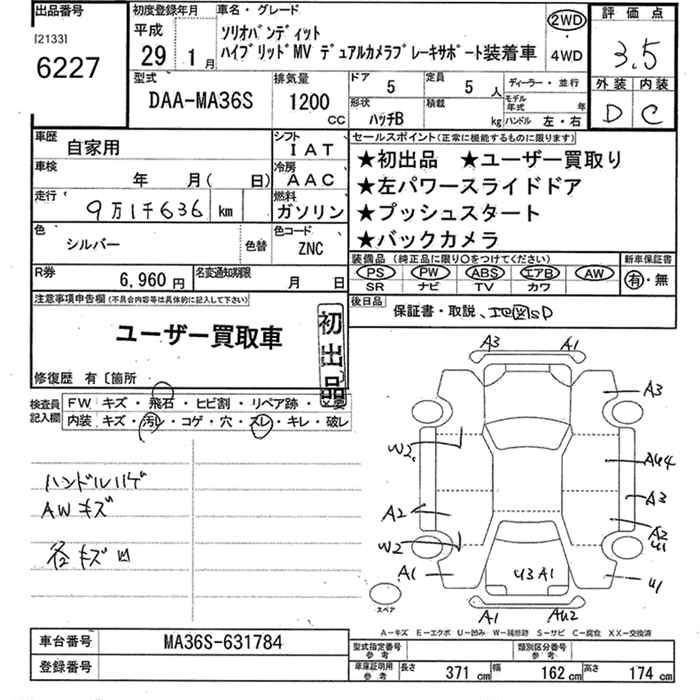 出品番号
[2133]
6227
初度登録年月
平成
29 1月
車名・グレード
ソリオバンディット
ハイブリッドMV デュアルカメラブレーキサポート装着車
2WD
4WD
評価点
3.5
外装 内装
D C
型式
DAA-MA36S
排気量
1200
CC
ドア 5
定員 5 人
形状 ハッチB
積載 kg
ディーラー・並行
モデル年式 年
ハンドル 左・右
車歴 自家用
シフト IAT
車検 年 月( 日)
冷房 AAC
走行 9万1千636 km
燃料 ガソリン
色 シルバー 色替
色コード ZNC
R券 6,960円
名変通知期限 月 日
セールスポイント(正常に機能するものに限ります)
★初出品 ★ユーザー買取り
★左パワースライドドア
★プッシュスタート
★バックカメラ
装備品(純正品に限り○をつけてください)
PS PW ABS エアB AW
SR ナビ TV カワ
新車保証書
有・無
後日品 保証書・取説、
注意事項申告欄(不具合内容等は具体的に記入して下さい)
ユーザー買取車
初出品
修復歴 有〔箇所
検査員記入欄
FW キズ・飛石・ヒビ割・リペア跡・
内装 キズ・汚レ・コゲ・穴・スレ・キレ・破レ
ハンドルハゲ
AWキズ
各キズ凹
A3 A1
A3
W2
AU4
A3
A2
A2
U1
W2
A1
U3 A1
U1
A1 AU2
スペア
A-キズ E-エクボ U-凹み W-補修跡 S-サビ C-腐食 XX-交換済
車台番号 MA36S-631784
登録番号
型式指定番号 参考
類別区分番号 参考
車庫証明用 参考
長さ 371 cm 幅 162 cm 高さ 174 cm